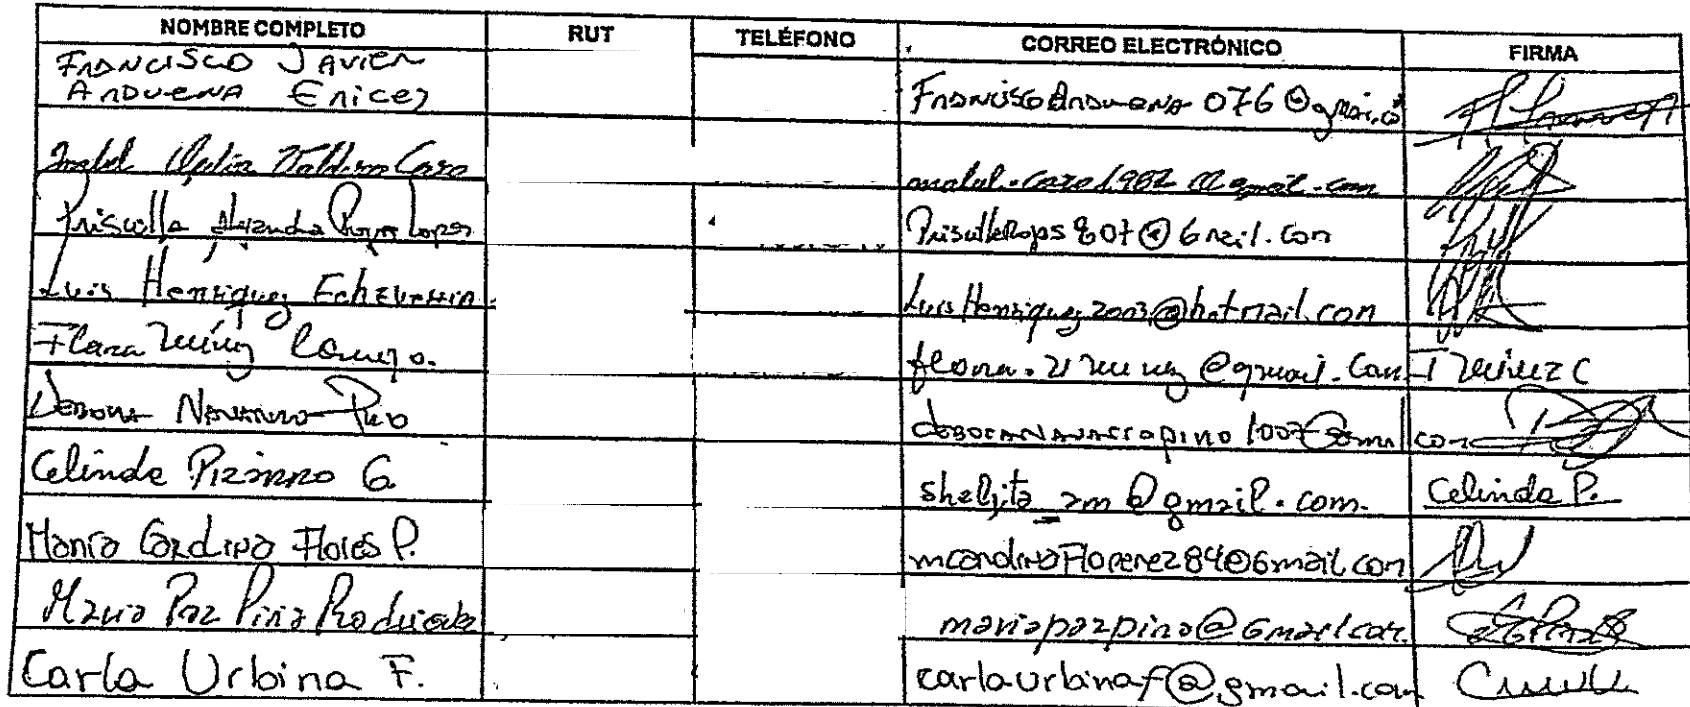 NOMBRE COMPLETO RUT TELÉFONO CORREO ELECTRÓNICO FIRMA
FRANCISCO JAVIER
ARDUENA Ericez FranciscoArduena 076@gmai.co
Isabel Caro malul.caro1982@gmail.com
Priscilla Alejandra Rojas Lopez PriscillaRojas807@Gmail.com
Luis Henriquez Echeverria LuisHenriquez2003@hotmail.com
Flora Muñoz Cornejo. flora.21munoz@gmail.com F Muñoz C
Debora Navarro Pino deboranavarropino1007@gmail.com
Celinda Pizarro G. shelgita_am@gmail.com. Celinda P.
María Cardina Flores P. mcardinaFlorerez84@Gmail.com
Maria Paz Pina Rodriguez mariapazpina@Gmail.com.
Carla Urbina F. carlaurbinaf@gmail.com